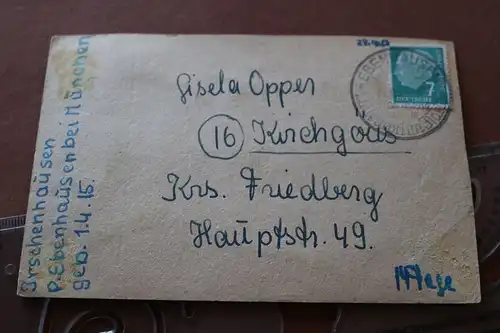 Gisela Opper
(16) Kirchgöns
Krs. Friedberg
Hauptstr. 49.
Irschenhausen
P. Ebenhausen bei München
geb. 1.4.15.
14 Tage
7
DEUTSCHE